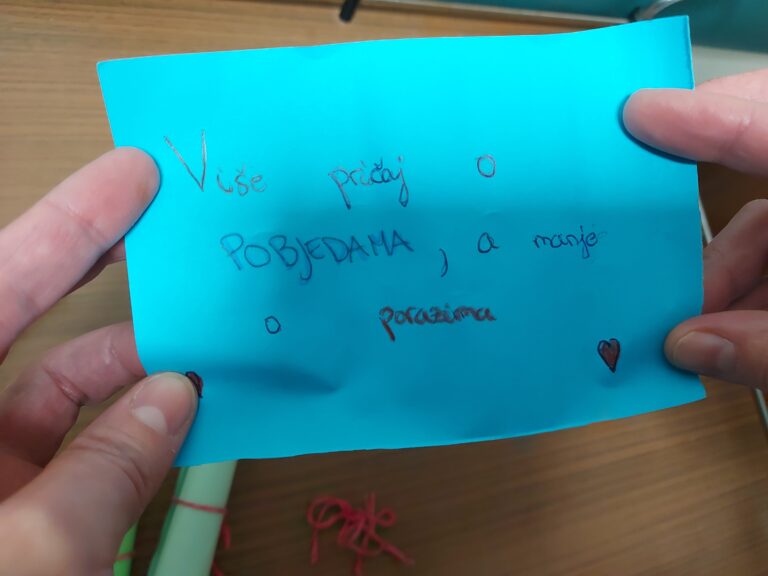 Više pričaj o
POBJEDAMA, a manje
o porazima